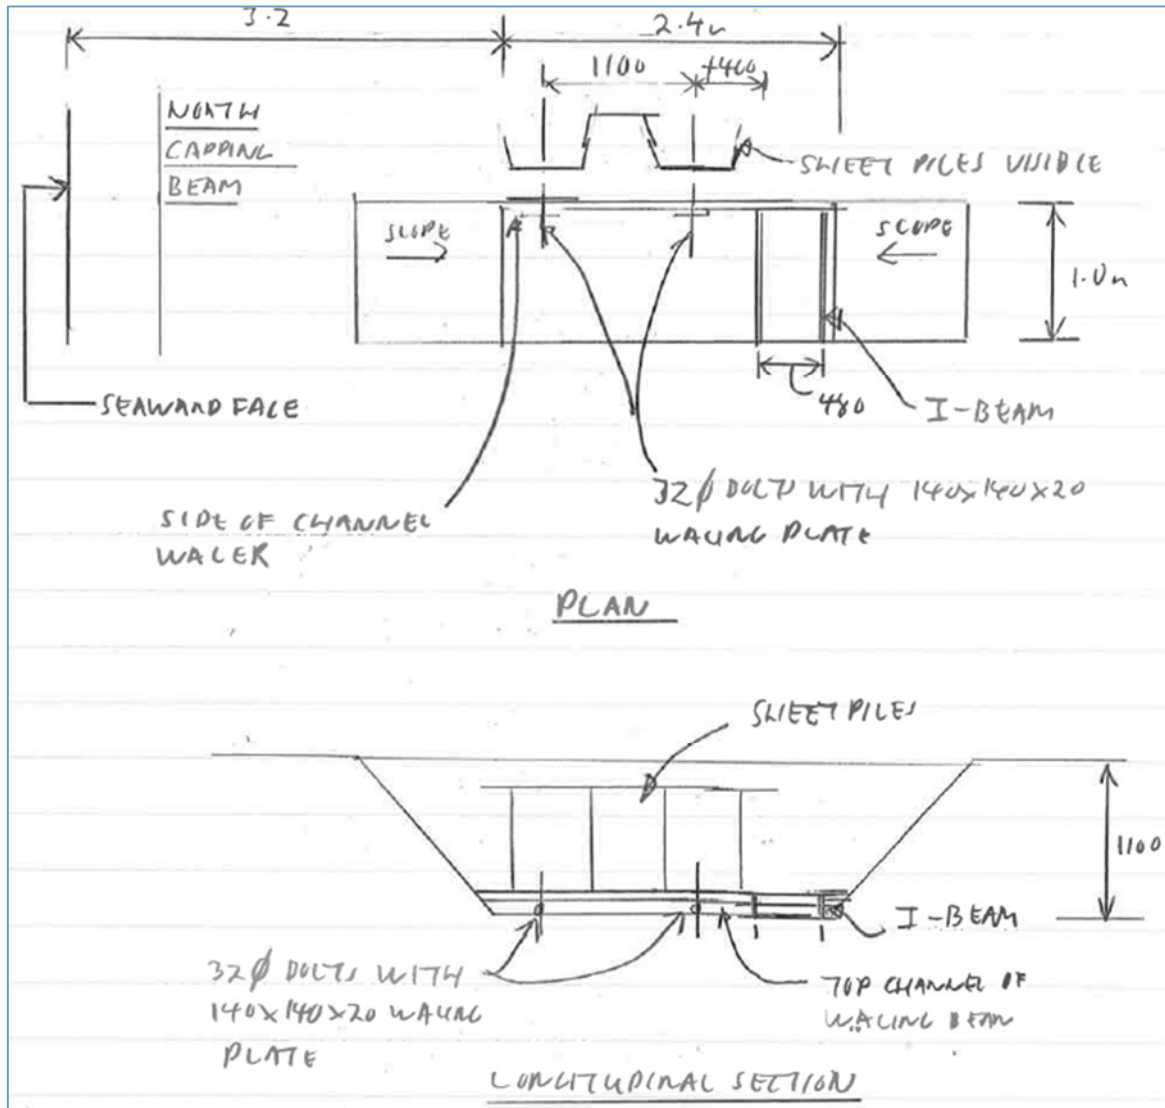 3.2
2.4m
1100
+400
NORTH
CAPPING
BEAM
SHEET PILES VISIBLE
SLOPE
SLOPE
1.0m
SEAWARD FACE
480
I-BEAM
32φ BOLTS WITH 140x140x20
WALING PLATE
SIDE OF CHANNEL
WALER
PLAN
SHEET PILES
1100
I-BEAM
32φ BOLTS WITH
140x140x20 WALING
PLATE
TOP CHANNEL OF
WALING BEAM
LONGITUDINAL SECTION